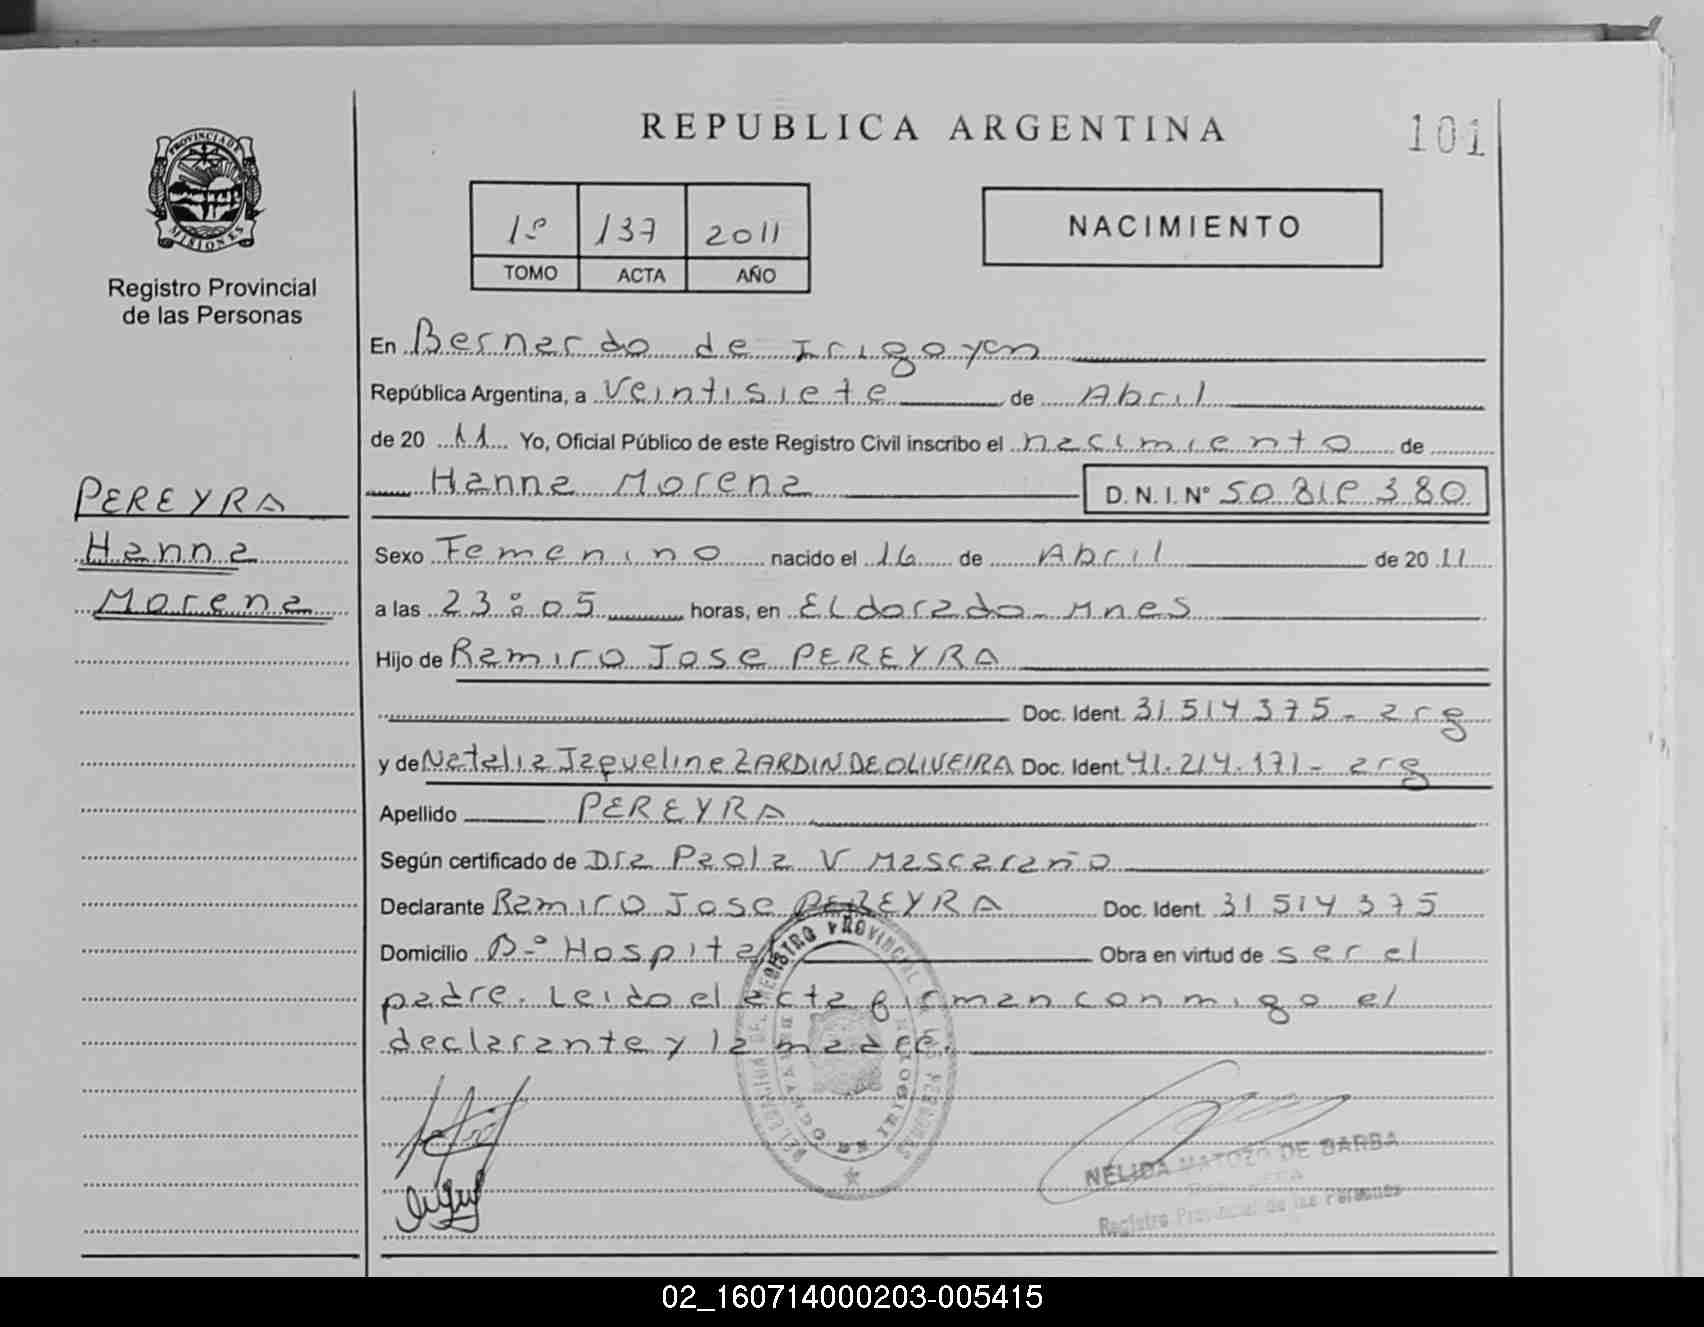 REPUBLICA ARGENTINA
101
PROVINCIA DE
MISIONES
Registro Provincial
de las Personas
1º 137 2011
TOMO ACTA AÑO
NACIMIENTO
En Bernardo de Irigoyen
República Argentina, a Veintisiete de Abril
de 20 11 Yo, Oficial Público de este Registro Civil inscribo el nacimiento de
Hanna Morena D. N. I. Nº
PEREYRA
Hanna
Morena
Sexo Femenino nacido el 16 de Abril de 20 11
a las 23:05 horas, en Eldorado - Mnes
Hijo de Ramiro Jose PEREYRA
Doc. Ident. 31 514 375 - arg
y de Natalia Jaqueline ZARDIN DE OLIVEIRA Doc. Ident. 41.214.171 - arg
Apellido PEREYRA
Según certificado de Dra Paola V Mascaraño
Declarante Ramiro Jose PEREYRA Doc. Ident. 31 514 375
Domicilio Bº Hospital Obra en virtud de ser el
padre. Leido el acta firman conmigo el
declarante y la madre.
NELIDA MATOZO DE BARBA
Registro Provincial de las Personas
02_160714000203-005415